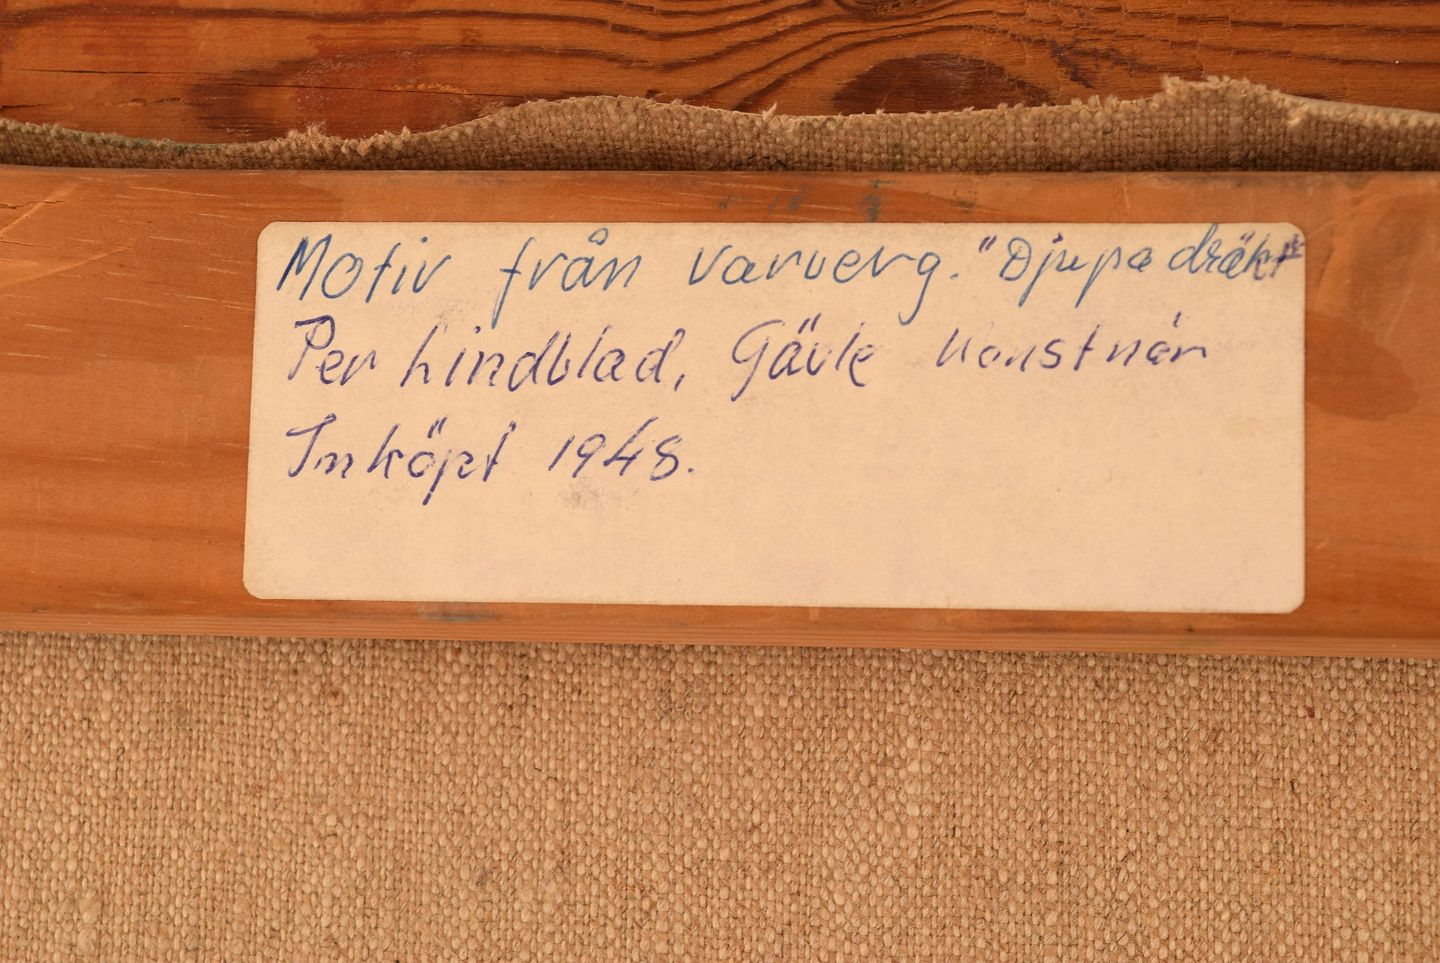 Motiv från Varverg. "Djupa dräkt"
Per Lindblad, Gävle Konstnär
Inköpt 1948.